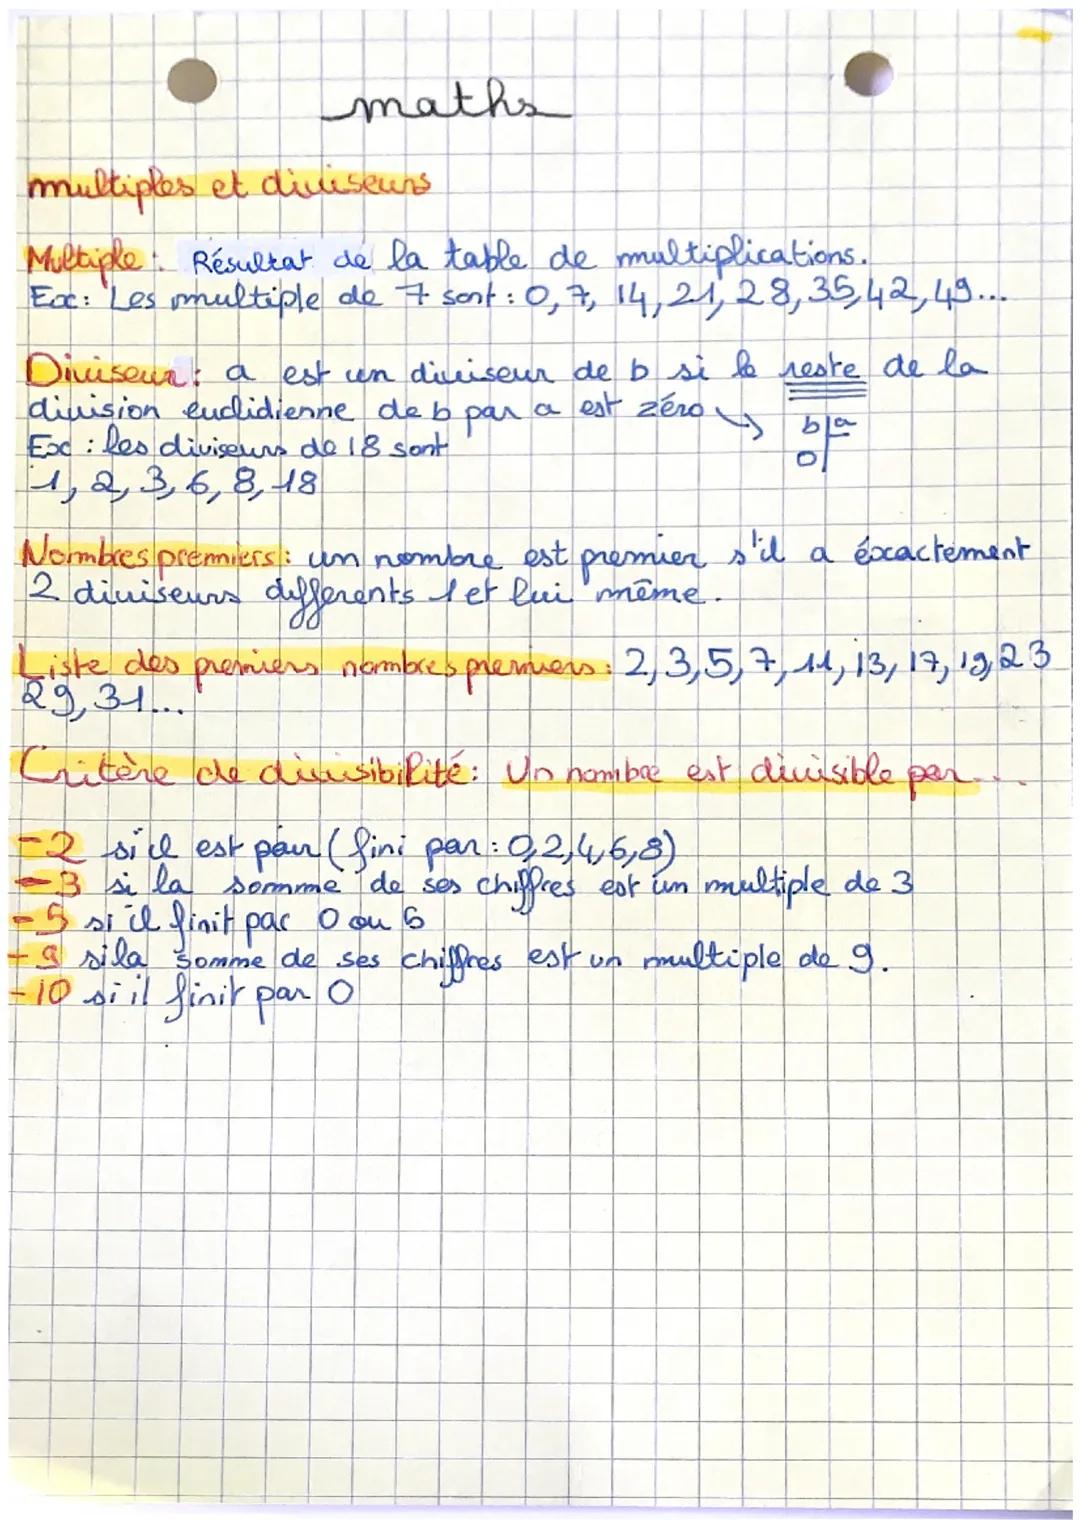 maths
multiples et diviseurs
Multiple : Résultat de la table de multiplications.
Ex: Les multiple de 7 sont : 0, 7, 14, 21, 28, 35, 42, 49...
Diviseur : a est un diviseur de b si le reste de la
division euclidienne de b par a est zéro →
b a
0
Ex : les diviseurs de 18 sont
1, 2, 3, 6, 8, 18
Nombres premiers : un nombre est premier s'il a éxactement
2 diviseurs differents 1 et lui même.
Liste des premiers nombres premiers : 2, 3, 5, 7, 11, 13, 17, 19, 23
29, 31...
Critère de divisibilité : Un nombre est divisible par...
-2 si il est pair (fini par : 0,2,4,6,8)
-3 si la somme de ses chiffres est un multiple de 3
-5 si il finit par 0 ou 5
-9 si la somme de ses chiffres est un multiple de 9.
-10 si il finit par 0